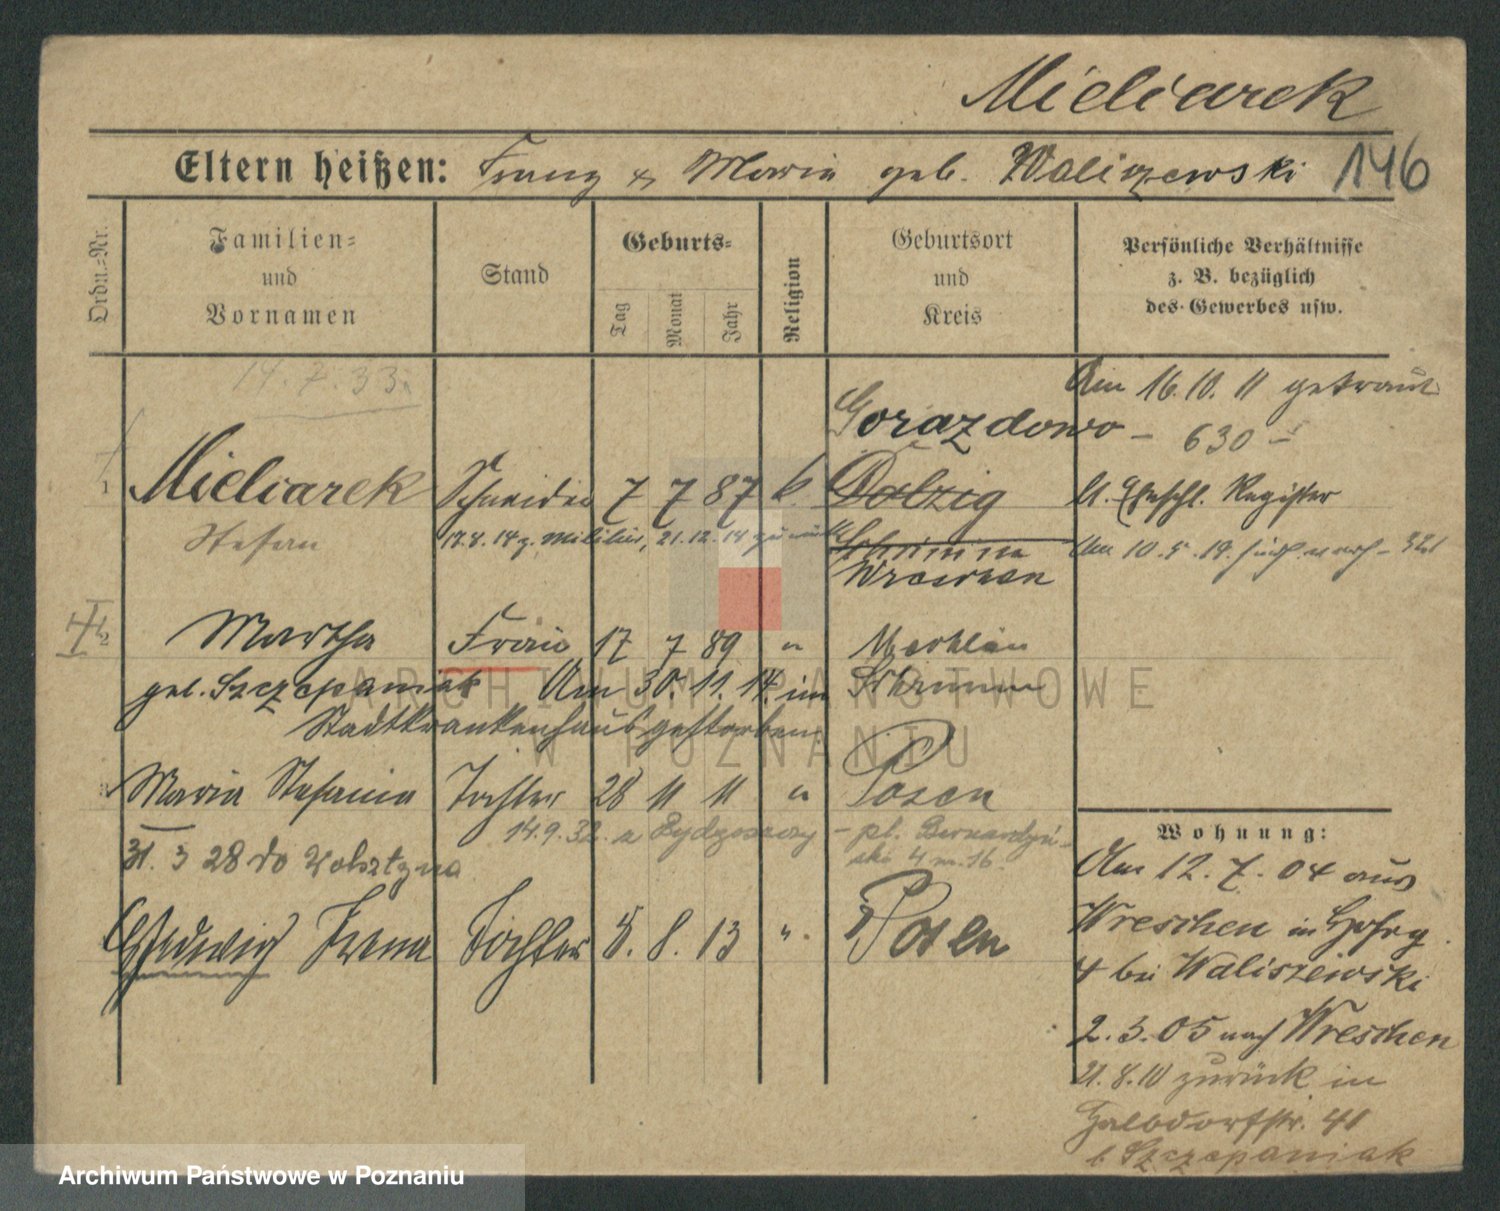 Mielcarek
Eltern heißen: Franz & Maria geb. Waliszewski 146
Ordn.-Nr.
Familien=
und
Vornamen
Stand
Geburts=
Tag
Monat
Jahr
Religion
Geburtsort
und
Kreis
Persönliche Verhältnisse
z. B. bezüglich
des Gewerbes usw.
14.7.33
Am 16.10.11 getraut
Gorazdowo
– 630 –
1 Mielcarek Schneider 7 7 87 k. Dolzig
lt. Eheschl. Register
Stefan
17.8.14 z. Militär, 21.12.14 zurück
Schrimm
Wreschen
Am 10.5.19.
2 Martha Frau 17 7 89 " Mechlin
geb. Szczepaniak Am 30.11.14. im Schrimm
Stadtkrankenhaus gestorben.
3 Maria Stefania Tochter 28 11 11 " Posen
14.9.32. z Bydgoszczy – pl. Bernardyń-
ski 4 m. 16.
31. 3 28 do Wolsztyna
Hedwig Irena Tochter 5. 8. 13 " Posen
Wohnung:
Am 12.7.04 aus
Wreschen in
4 bei Waliszewski
2.3.05 nach Wreschen
21.8.10 zurück in
Halbdorfstr. 41
b. Szczepaniak
ARCHIWUM PAŃSTWOWE
W POZNANIU
Archiwum Państwowe w Poznaniu